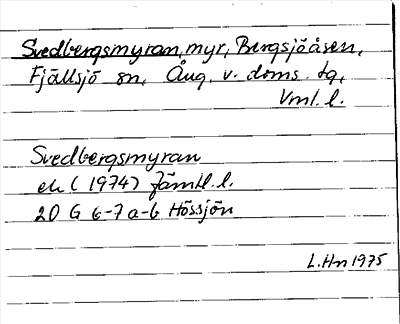 Svedbergsmyran, myr, Bergsjöåsen,
Fjällsjö sn, Ång. v. doms. tg,
Vnl. l.
Svedbergsmyran
ek (1974) Jämtl. l.
20 G 6-7 a-b Hössjön
L. Hn 1975